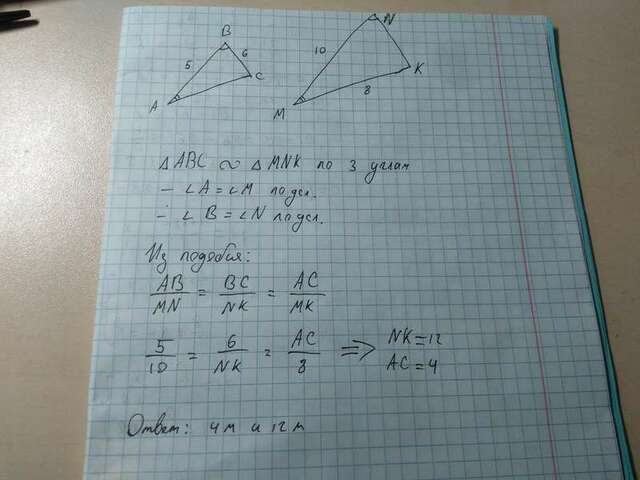 B
N
5
6
10
C
K
A
8
M
△ABC ∾ △MNK по 3 углам
- ∠A = ∠M по усл.
- ∠B = ∠N по усл.
Из подобия:
AB/MN = BC/NK = AC/MK
5/10 = 6/NK = AC/8 => NK=12
AC=4
Ответ: 4 м и 12 м